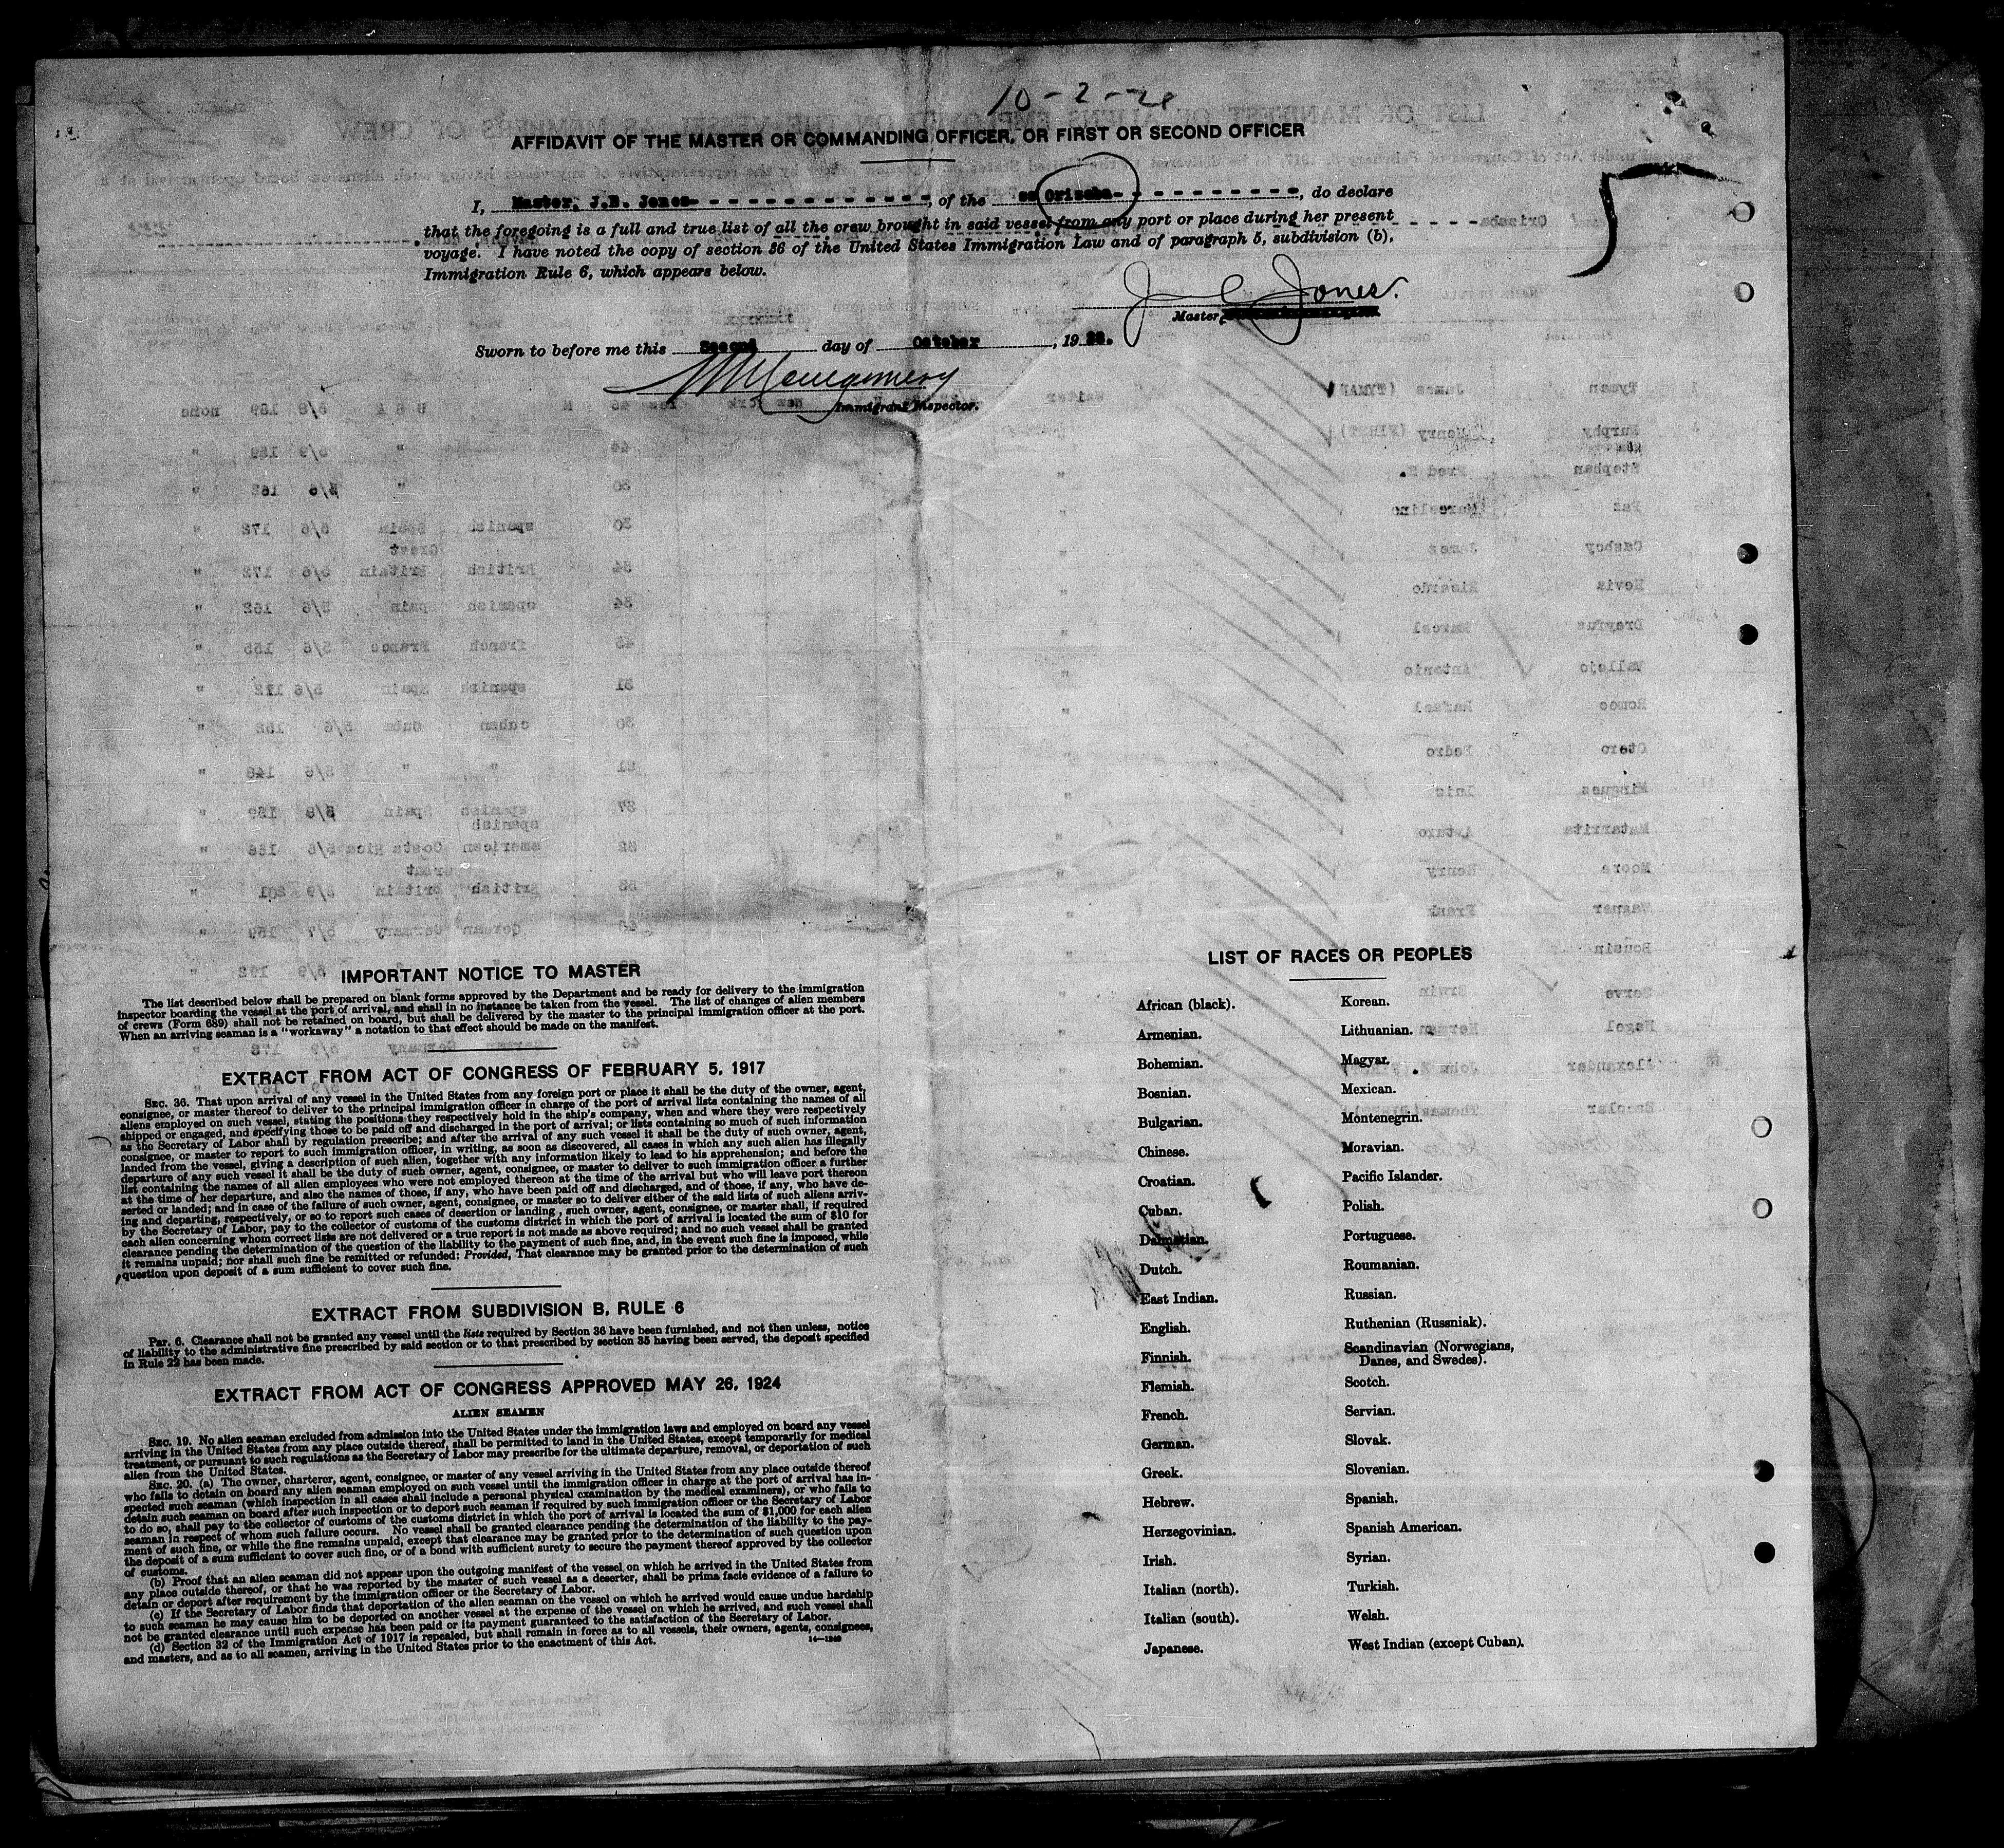 10-2-28
AFFIDAVIT OF THE MASTER OR COMMANDING OFFICER, OR FIRST OR SECOND OFFICER
I, Master, J.E. Jones, of the ss Orizaba, do declare
that the foregoing is a full and true list of all the crew brought in said vessel from any port or place during her present
voyage. I have noted the copy of section 36 of the United States Immigration Law and of paragraph 5, subdivision (b),
Immigration Rule 6, which appears below.
Jones.
Master
Sworn to before me this Second day of October, 1928.
Montgomery
Immigrant Inspector.
5
IMPORTANT NOTICE TO MASTER
The list described below shall be prepared on blank forms approved by the Department and be ready for delivery to the immigration
inspector boarding the vessel at the port of arrival, and shall in no instance be taken from the vessel. The list of changes of alien members
of crews (Form 689) shall not be retained on board, but shall be delivered by the master to the principal immigration officer at the port.
When an arriving seaman is a "workaway" a notation to that effect should be made on the manifest.
EXTRACT FROM ACT OF CONGRESS OF FEBRUARY 5, 1917
SEC. 36. That upon arrival of any vessel in the United States from any foreign port or place it shall be the duty of the owner, agent,
consignee, or master thereof to deliver to the principal immigration officer in charge of the port of arrival lists containing the names of all
aliens employed on such vessel, stating the positions they respectively hold in the ship's company, when and where they were respectively
shipped or engaged, and specifying those to be paid off and discharged in the port of arrival; or lists containing so much of such information
as the Secretary of Labor shall by regulation prescribe; and after the arrival of any such vessel it shall be the duty of such owner, agent,
consignee, or master to report to such immigration officer, in writing, as soon as discovered, all cases in which any such alien has illegally
landed from the vessel, giving a description of such alien, together with any information likely to lead to his apprehension; and before the
departure of any such vessel it shall be the duty of such owner, agent, consignee, or master to deliver to such immigration officer a further
list containing the names of all alien employees who were not employed thereon at the time of the arrival but who will leave port thereon
at the time of her departure, and also the names of those, if any, who have been paid off and discharged, and of those, if any, who have de-
serted or landed; and in case of the failure of such owner, agent, consignee, or master so to deliver either of the said lists of such aliens arriv-
ing and departing, respectively, or so to report such cases of desertion or landing, such owner, agent, consignee, or master shall, if required
by the Secretary of Labor, pay to the collector of customs of the customs district in which the port of arrival is located the sum of $10 for
each alien concerning whom correct lists are not delivered or a true report is not made as above required; and no such vessel shall be granted
clearance pending the determination of the question of the liability to the payment of such fine, and, in the event such fine is imposed, while
it remains unpaid; nor shall such fine be remitted or refunded: Provided, That clearance may be granted prior to the determination of such
question upon deposit of a sum sufficient to cover such fine.
EXTRACT FROM SUBDIVISION B, RULE 6
Par. 6. Clearance shall not be granted any vessel until the lists required by Section 36 have been furnished, and not then unless, notice
of liability to the administrative fine prescribed by said section or to that prescribed by section 35 having been served, the deposit specified
in Rule 22 has been made.
EXTRACT FROM ACT OF CONGRESS APPROVED MAY 26, 1924
ALIEN SEAMEN
SEC. 19. No alien seaman excluded from admission into the United States under the immigration laws and employed on board any vessel
arriving in the United States from any place outside thereof, shall be permitted to land in the United States, except temporarily for medical
treatment, or pursuant to such regulations as the Secretary of Labor may prescribe for the ultimate departure, removal, or deportation of such
alien from the United States.
SEC. 20. (a) The owner, charterer, agent, consignee, or master of any vessel arriving in the United States from any place outside thereof
who fails to detain on board any alien seaman employed on such vessel until the immigration officer in charge at the port of arrival has in-
spected such seaman (which inspection in all cases shall include a personal physical examination by the medical examiners), or who fails to
detain such seaman on board after such inspection or to deport such seaman if required by such immigration officer or the Secretary of Labor
to do so, shall pay to the collector of customs of the customs district in which the port of arrival is located the sum of $1,000 for each alien
seaman in respect of whom such failure occurs. No vessel shall be granted clearance pending the determination of the liability to the pay-
ment of such fine, or while the fine remains unpaid, except that clearance may be granted prior to the determination of such question upon
the deposit of a sum sufficient to cover such fine, or of a bond with sufficient surety to secure the payment thereof approved by the collector
of customs.
(b) Proof that an alien seaman did not appear upon the outgoing manifest of the vessel on which he arrived in the United States from
any place outside thereof, or that he was reported by the master of such vessel as a deserter, shall be prima facie evidence of a failure to
detain or deport after requirement by the immigration officer or the Secretary of Labor.
(c) If the Secretary of Labor finds that deportation of the alien seaman on the vessel on which he arrived would cause undue hardship
to such seaman he may cause him to be deported on another vessel at the expense of the vessel on which he arrived, and such vessel shall
not be granted clearance until such expense has been paid or its payment guaranteed to the satisfaction of the Secretary of Labor.
(d) Section 32 of the Immigration Act of 1917 is repealed, but shall remain in force as to all vessels, their owners, agents, consignees,
and masters, and as to all seamen, arriving in the United States prior to the enactment of this Act.
14—1240
LIST OF RACES OR PEOPLES
African (black).
Armenian.
Bohemian.
Bosnian.
Bulgarian.
Chinese.
Croatian.
Cuban.
Dalmatian.
Dutch.
East Indian.
English.
Finnish.
Flemish.
French.
German.
Greek.
Hebrew.
Herzegovinian.
Irish.
Italian (north).
Italian (south).
Japanese.
Korean.
Lithuanian.
Magyar.
Mexican.
Montenegrin.
Moravian.
Pacific Islander.
Polish.
Portuguese.
Roumanian.
Russian.
Ruthenian (Russniak).
Scandinavian (Norwegians,
Danes, and Swedes).
Scotch.
Servian.
Slovak.
Slovenian.
Spanish.
Spanish American.
Syrian.
Turkish.
Welsh.
West Indian (except Cuban).